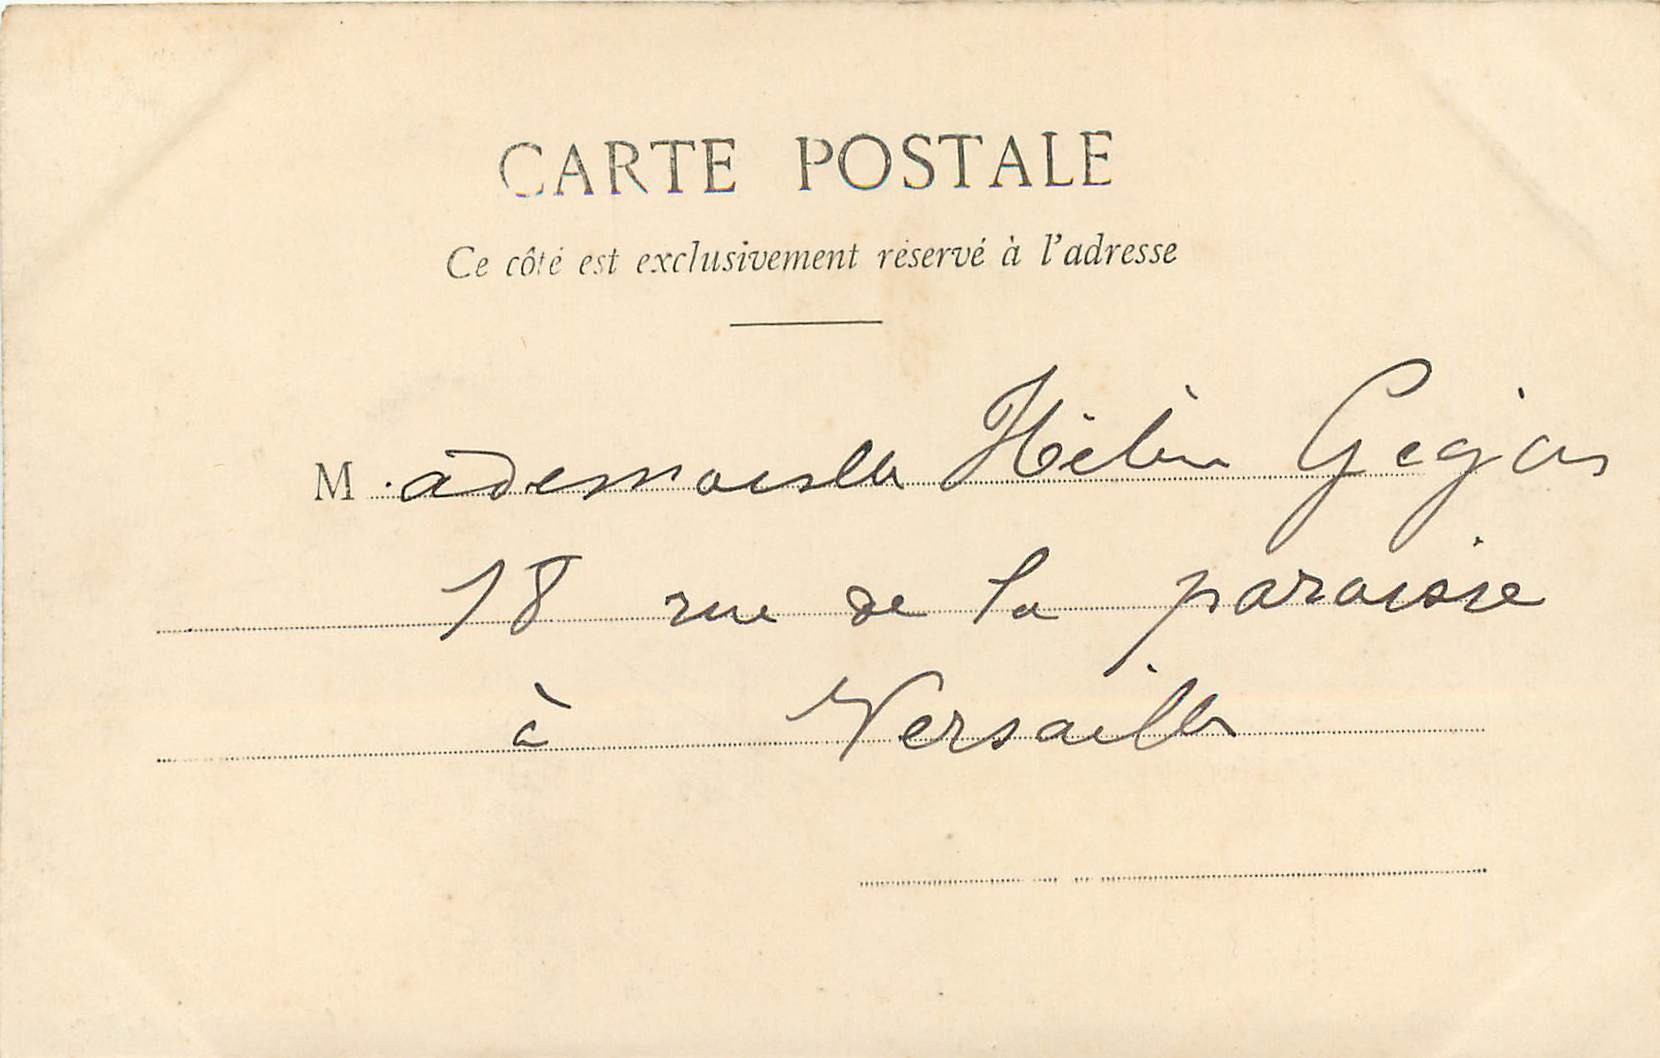 CARTE POSTALE
Ce côté est exclusivement réservé à l'adresse
Mademoiselle Hélène
18 rue de la paroisse
à Versailles